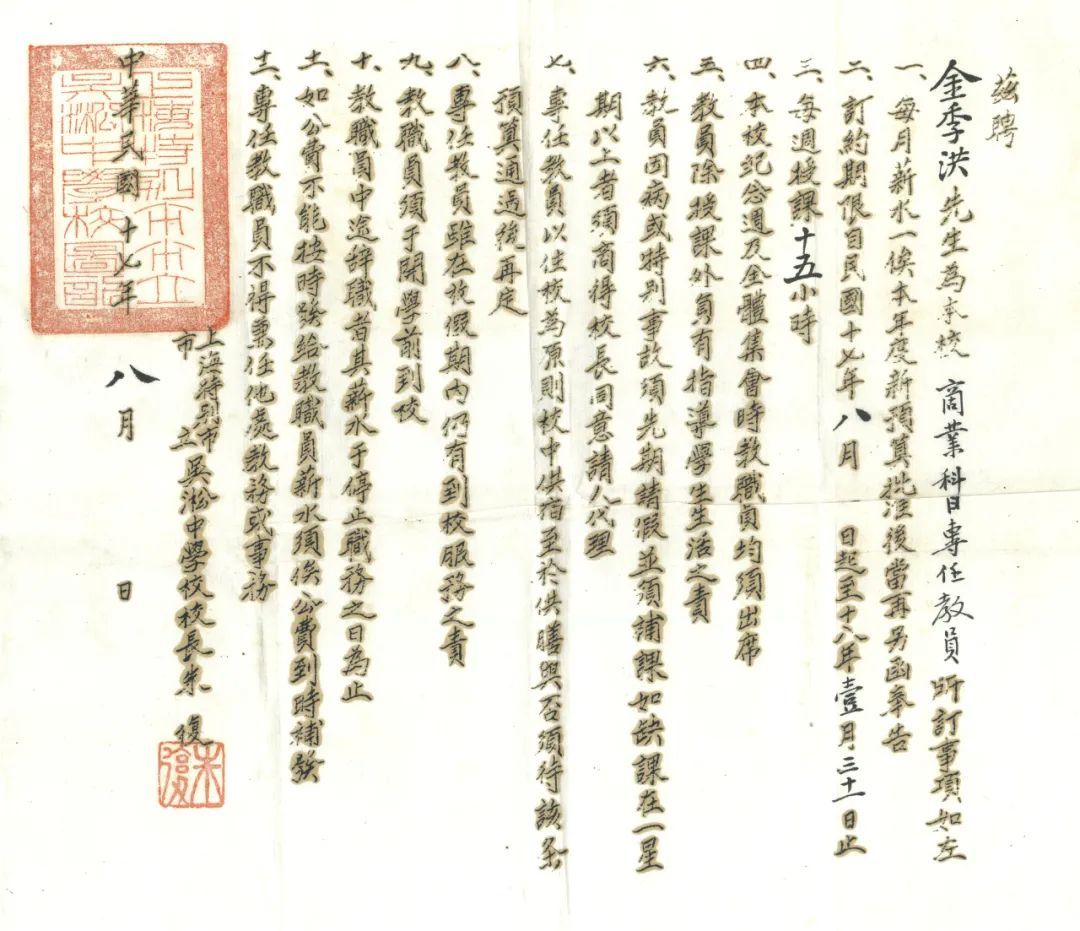 茲聘
金季洪先生為本校商業科目專任教員所訂事項如左
一、每月薪水一俟本年度新預算批准後當再另函奉告
二、訂約期限自民國十七年八月 日起至十八年壹月三十一日止
三、每週授課十五小時
四、本校紀念週及全體集會時教職員均須出席
五、教員除授課外負有指導學生生活之責
六、教員因病或特別事故須先期請假並須補課如缺課在一星
期以上者須商得校長同意請人代理
七、專任教員以住校為原則校中供宿至於供膳與否須待該案
預算通過後再定
八、專任教員雖在放假期內仍有到校服務之責
九、教職員須于開學前到校
十、教職員中途辭職者其薪水于停止職務之日為止
十一、如公費不能按時發給教職員薪水須俟公費到時補發
十二、專任教職員不得兼任他處教務或事務
上海特別市市立吳淞中學校校長朱復
中華民國十七年八月 日
上海特別市市立吳淞中學校
朱復